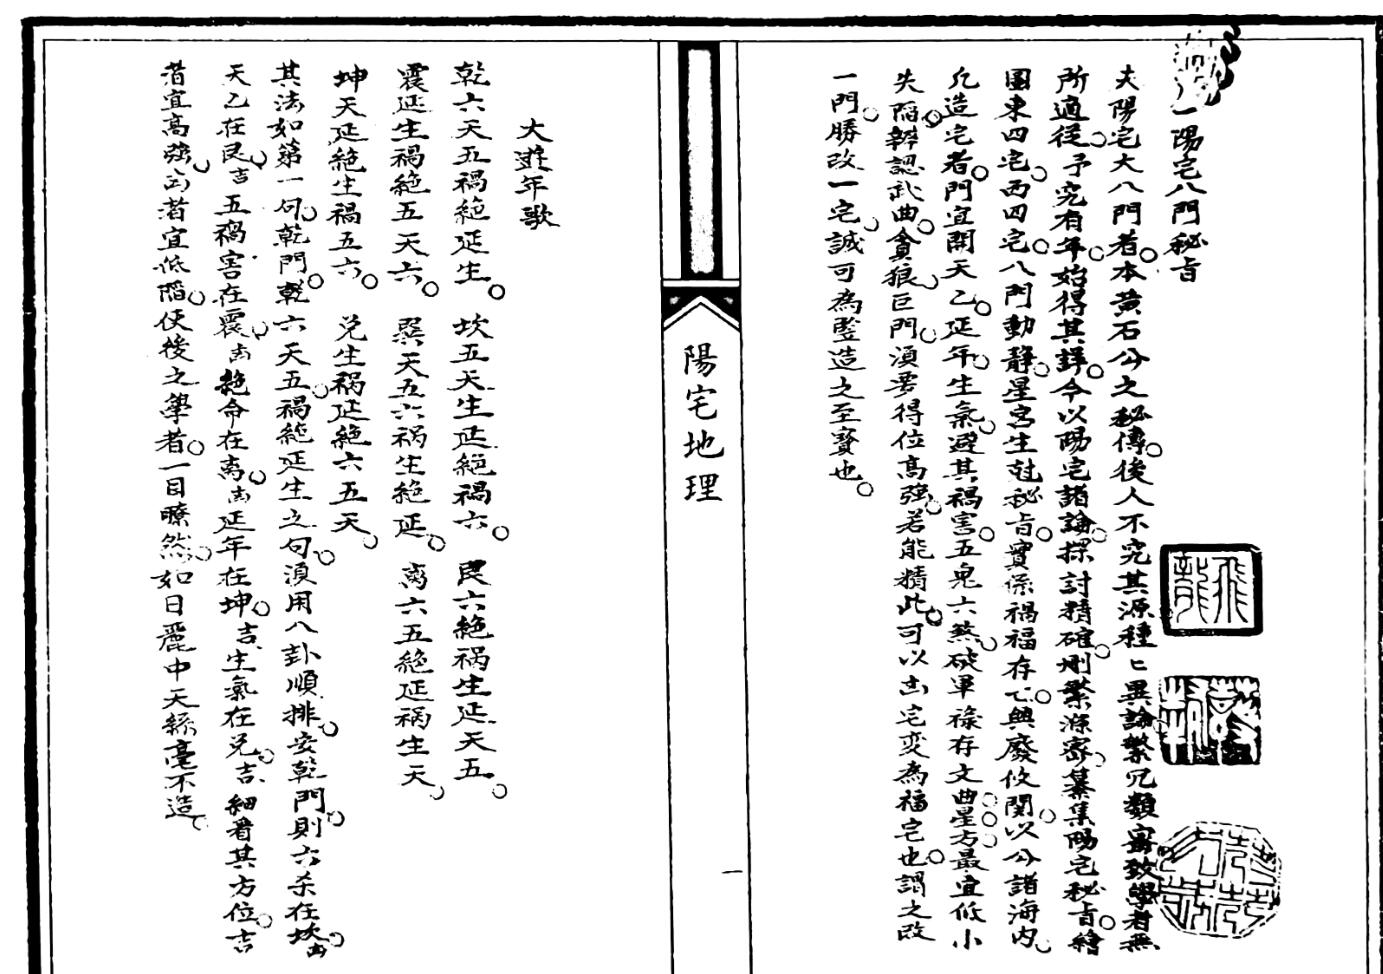 一陽宅八門秘旨
夫陽宅大八門者本黃石公之秘傳後人不究其源種〻異論繁冗類富致學者無
所適從予究有年始得其詳今以陽宅諸論探討精確刪繁滌穢纂集陽宅秘旨繪
圖東四宅西四宅八門動靜星宮生尅秘旨實係禍福存亡興廢攸関以公諸海內
凢造宅者門宜開天乙延年生氣避其禍害五鬼六煞破軍祿存文曲星方最宜低小
失陷辨認武曲貪狼巨門湏要得位高強若能精此可以凶宅变為福宅也謂之改
一門勝改一宅誠可為竪造之至寳也
陽宅地理
一
大遊年歌
乾六天五禍絶延生 坎五天生延絶禍六 艮六絶祸生延天五
震延生禍絶五天六 巽天五六祸生絶延 离六五絶延祸生天
坤天延絶生禍五六 兌生祸延絶六五天
其法如第一句乾門乾六天五禍絶延生之句湏用八卦順排安乾門則六杀在坎凶
天乙在艮吉五禍害在震凶絶命在离凶延年在坤吉生氣在兌吉細看其方位吉
者宜高強凶者宜低陷使後之學者一目瞭然如日麗中天絲毫不造
飛龍